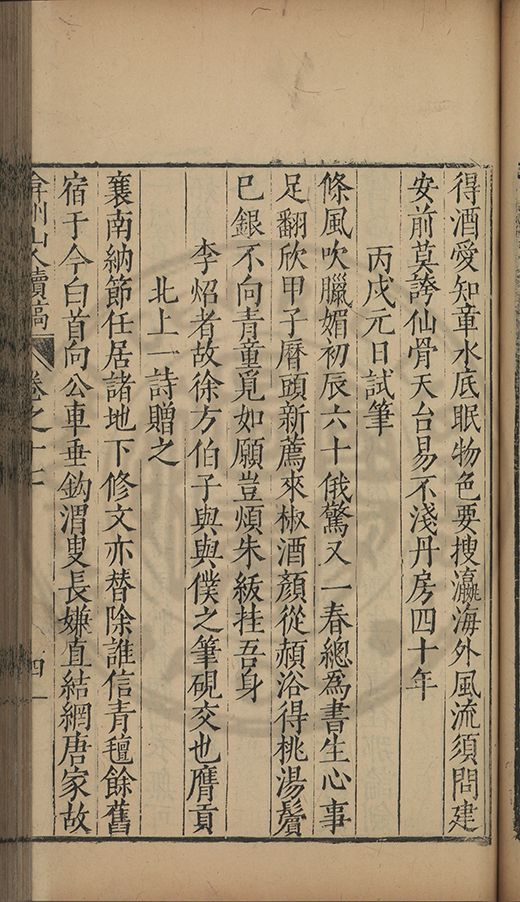 得酒愛知童水底眠物色要搜瀛海外風流須問建
安前莫誇仙骨天台易不淺丹房四十年
丙戌元日試筆
條風吹臘媚初辰六十俄驚又一春總為書生心事
足翻欣甲子曆頭新薦來椒酒顏從頳浴得桃湯鬢
已銀不向青童覓如願豈煩朱紱挂吾身
李炤者故徐方伯子與與僕之筆硯交也膺貢
北上一詩贈之
襄南納節任居諸地下修文亦替除誰信青氊餘舊
宿于今白首向公車垂鈎渭叟長嫌直結網唐家故
弇州山人續稿 卷之十七 四